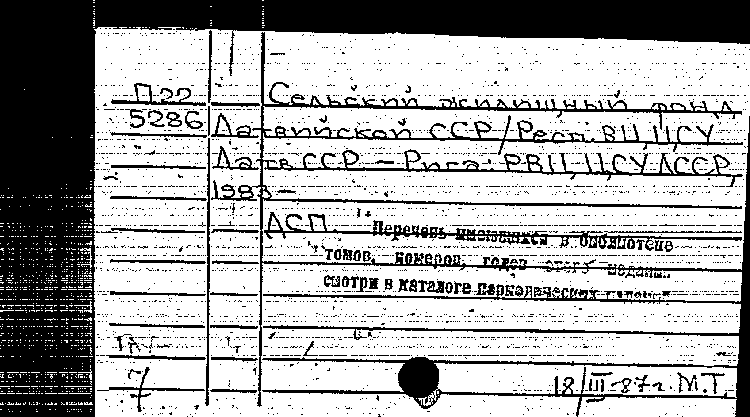 П22
5286
Сельский жилищный фонд
Латвийской ССР / Респ. ВЦ ЦСУ
Латв ССР — Рига: РВЦ ЦСУ ЛССР,
1983 —
ДСП. "Перечень имеющихся в библиотеке
томов, номеров, годов этого издания
смотри в каталоге периодических изданий"
18/III-87г. М.Т.